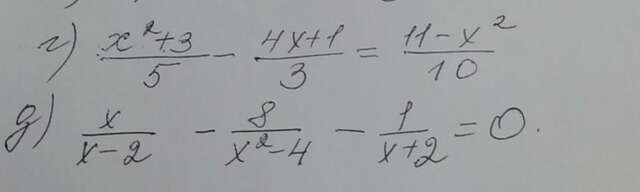 г) \frac{x^2+3}{5} - \frac{4x+1}{3} = \frac{11-x^2}{10}
д) \frac{x}{x-2} - \frac{8}{x^2-4} - \frac{1}{x+2} = 0.